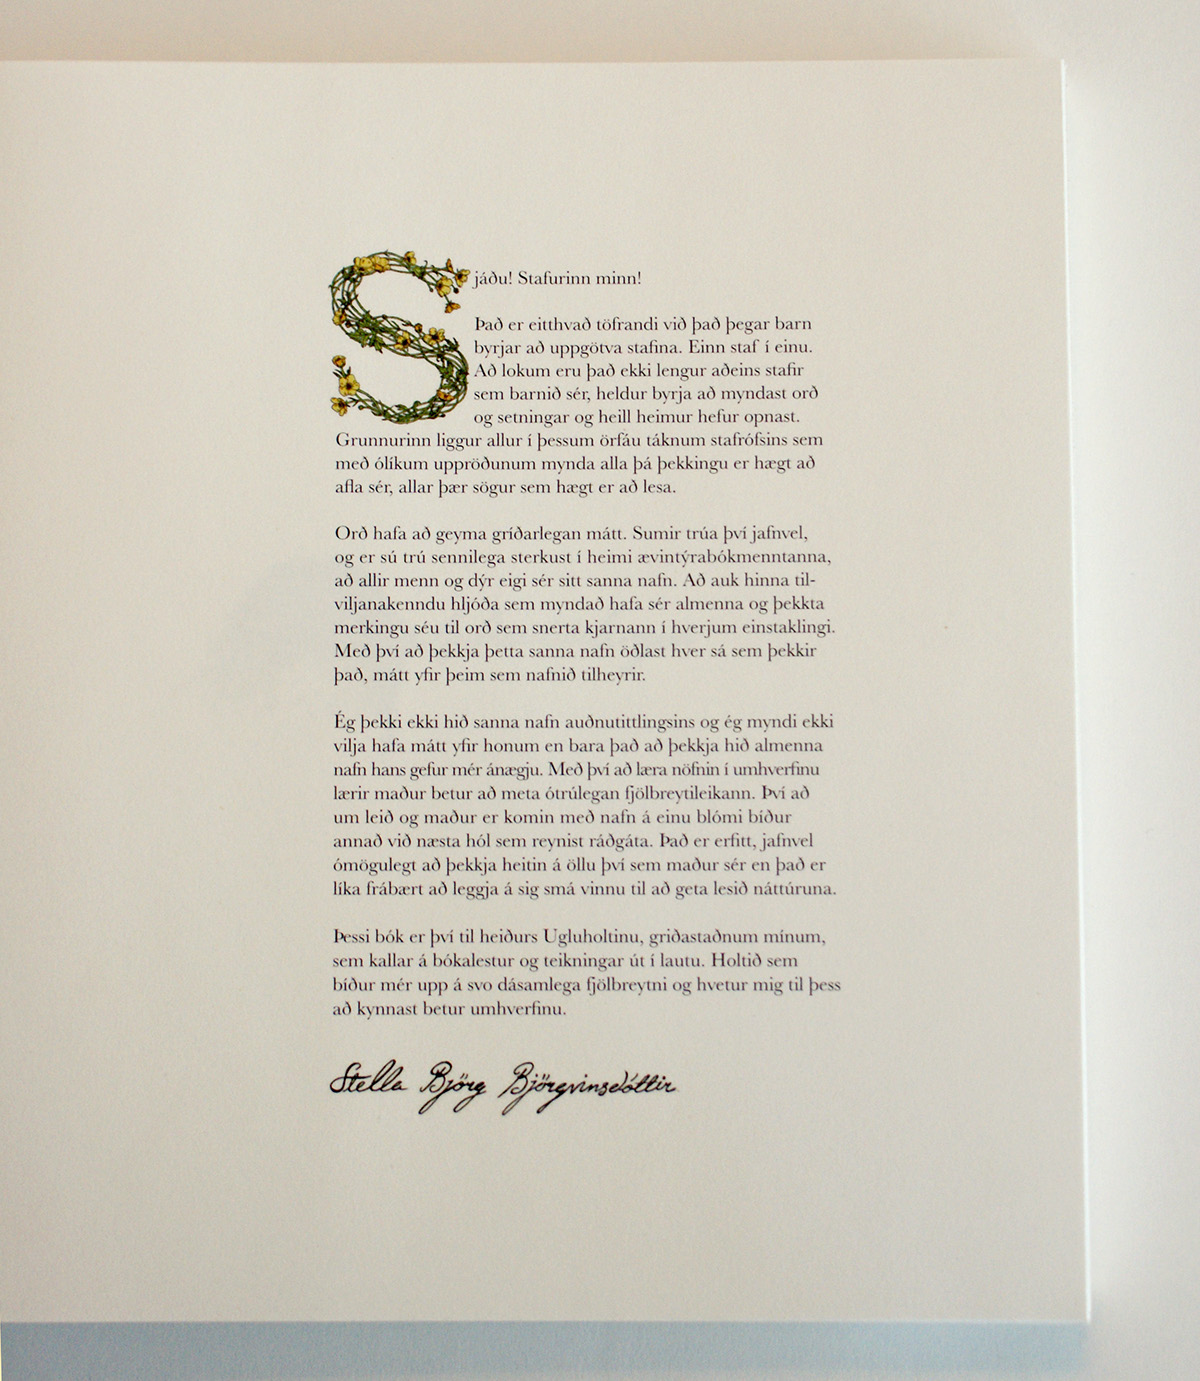 Sjáðu! Stafurinn minn!
Það er eitthvað töfrandi við það þegar barn
byrjar að uppgötva stafina. Einn staf í einu.
Að lokum eru það ekki lengur aðeins stafir
sem barnið sér, heldur byrja að myndast orð
og setningar og heill heimur hefur opnast.
Grunnurinn liggur allur í þessum örfáu táknum stafrófsins sem
með ólíkum uppröðunum mynda alla þá þekkingu er hægt að
afla sér, allar þær sögur sem hægt er að lesa.
Orð hafa að geyma gríðarlegan mátt. Sumir trúa því jafnvel,
og er sú trú sennilega sterkust í heimi ævintýrabókmenntanna,
að allir menn og dýr eigi sér sitt sanna nafn. Að auk hinna til-
viljanakenndu hljóða sem myndað hafa sér almenna og þekkta
merkingu séu til orð sem snerta kjarnann í hverjum einstaklingi.
Með því að þekkja þetta sanna nafn öðlast hver sá sem þekkir
það, mátt yfir þeim sem nafnið tilheyrir.
Ég þekki ekki hið sanna nafn auðnutittlingsins og ég myndi ekki
vilja hafa mátt yfir honum en bara það að þekkja hið almenna
nafn hans gefur mér ánægju. Með því að læra nöfnin í umhverfinu
lærir maður betur að meta ótrúlegan fjölbreytileikann. Því að
um leið og maður er komin með nafn á einu blómi bíður
annað við næsta hól sem reynist ráðgáta. Það er erfitt, jafnvel
ómögulegt að þekkja heitin á öllu því sem maður sér en það er
líka frábært að leggja á sig smá vinnu til að geta lesið náttúruna.
Þessi bók er því til heiðurs Ugluholtinu, griðastaðnum mínum,
sem kallar á bókalestur og teikningar út í lautu. Holtið sem
bíður mér upp á svo dásamlega fjölbreytni og hvetur mig til þess
að kynnast betur umhverfinu.
Stella Björg Björgvinsdóttir